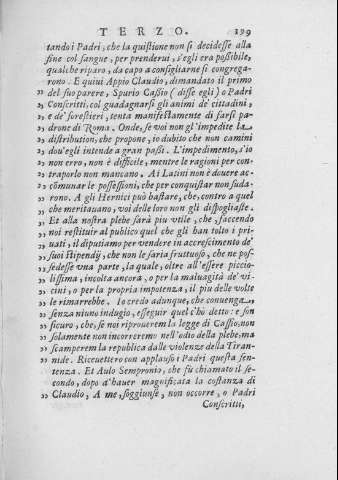 TERZO. 199
tando i Padri, che la quistione non si decidesse alla
fine col sangue, per prenderui, s'egli era possibile,
qualche riparo, da capo a consigliarne si congrega-
rono. E quiui Appio Claudio, dimandato il primo
„ del suo parere, Spurio Cassio (disse egli) o Padri
„ Conscritti, col guadagnarsi gli animi de' cittadini,
„ e de' forestieri, tenta manifestamente di farsi pa-
„ drone di Roma. Onde, se voi non gl'impedite la
„ distribution, che propone, io dubito che non camini
„ dou'egli intende a gran passi. L'impedimento, s'io
„ non erro, non è difficile, mentre le ragioni per con-
„ traporlo non mancano. Ai Latini non è douere ac-
„ cõmunar le possessioni, che per conquistar non suda-
„ rono. A gli Hernici può bastare, che, contro a quel
„ che meritauano, voi delle loro non gli dispogliaste.
„ Et alla nostra plebe sarà piu vtile, che, facendo
„ noi restituir al publico quel che gli han tolto i pri-
„ uati, il diputiamo per vendere in accrescimento de'
„ suoi stipendij, che non le saria fruttuoso, che ne pos-
„ sedesse vna parte, la quale, oltre all'essere piccio-
„ lissima, incolta ancora, o per la maluagità de' vi-
„ cini, o per la propria impotenza, il piu delle volte
„ le rimarrebbe. Io credo adunque, che conuenga,
„ senza niuno indugio, esseguir quel c'hò detto: e son
„ sicuro, che, se noi riprouerem la legge di Cassio, non
„ solamente non incorreremo nell'odio della plebe, ma
„ scamperem la republica dalle violenze della Tiran-
„ nide. Riceuettero con applauso i Padri questa sen-
tenza. Et Aulo Sempronio, che fù chiamato il se-
condo, dopo d'hauer magnificata la costanza di
„ Claudio, A me, soggiunse, non occorre, o Padri
Conscritti,